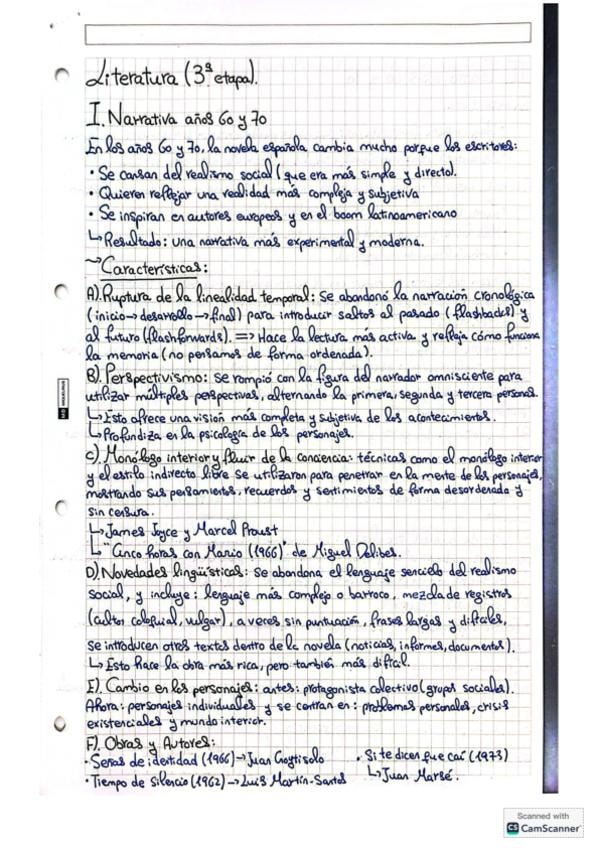 Literatura (3ª etapa).
I. Narrativa años 60 y 70
En los años 60 y 70, la novela española cambia mucho porque los escritores:
• Se cansan del realismo social (que era más simple y directo).
• Quieren reflejar una realidad más compleja y subjetiva
• Se inspiran en autores europeos y en el boom latinoamericano
↳ Resultado: una narrativa más experimental y moderna.
~ Características:
A). Ruptura de la linealidad temporal: Se abandonó la narración cronológica
(inicio → desarrollo → final) para introducir saltos al pasado (flashbacks) y
al futuro (flashforwards). => Hace la lectura más activa y refleja cómo funciona
la memoria (no pensamos de forma ordenada).
B). Perspectivismo: se rompió con la figura del narrador omnisciente para
utilizar múltiples perspectivas, alternando la primera, segunda y tercera persona.
↳ Esto ofrece una visión más completa y subjetiva de los acontecimientos.
↳ Profundiza en la psicología de los personajes.
C). Monólogo interior y fluir de la conciencia: técnicas como el monólogo interior
y el estilo indirecto libre se utilizaron para penetrar en la mente de los personajes,
mostrando sus pensamientos, recuerdos y sentimientos de forma desordenada y
sin censura.
↳ James Joyce y Marcel Proust
↳ "Cinco horas con Mario (1966)" de Miguel Delibes.
D). Novedades lingüísticas: se abandona el lenguaje sencillo del realismo
social, y incluye: lenguaje más complejo o barroco, mezcla de registros
(culto, coloquial, vulgar), a veces sin puntuación, frases largas y difíciles,
se introducen otros textos dentro de la novela (noticias, informes, documentos).
↳ Esto hace la obra más rica, pero también más difícil.
E). Cambio en los personajes: antes: protagonista colectivo (grupos sociales).
Ahora: personajes individuales y se centran en: problemas personales, crisis
existenciales y mundo interior.
F). Obras y Autores:
• Señas de identidad (1966) → Juan Goytisolo • Si te dicen que caí (1973)
• Tiempo de silencio (1962) → Luis Martín-Santos ↳ Juan Marsé.
Scanned with
CS CamScanner